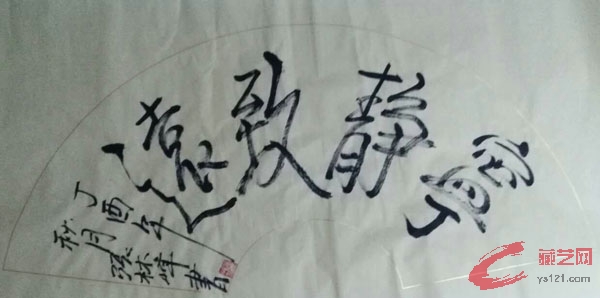 寧静致遠
丁酉年
秋月孫林峰書
藏艺网
ys121.com